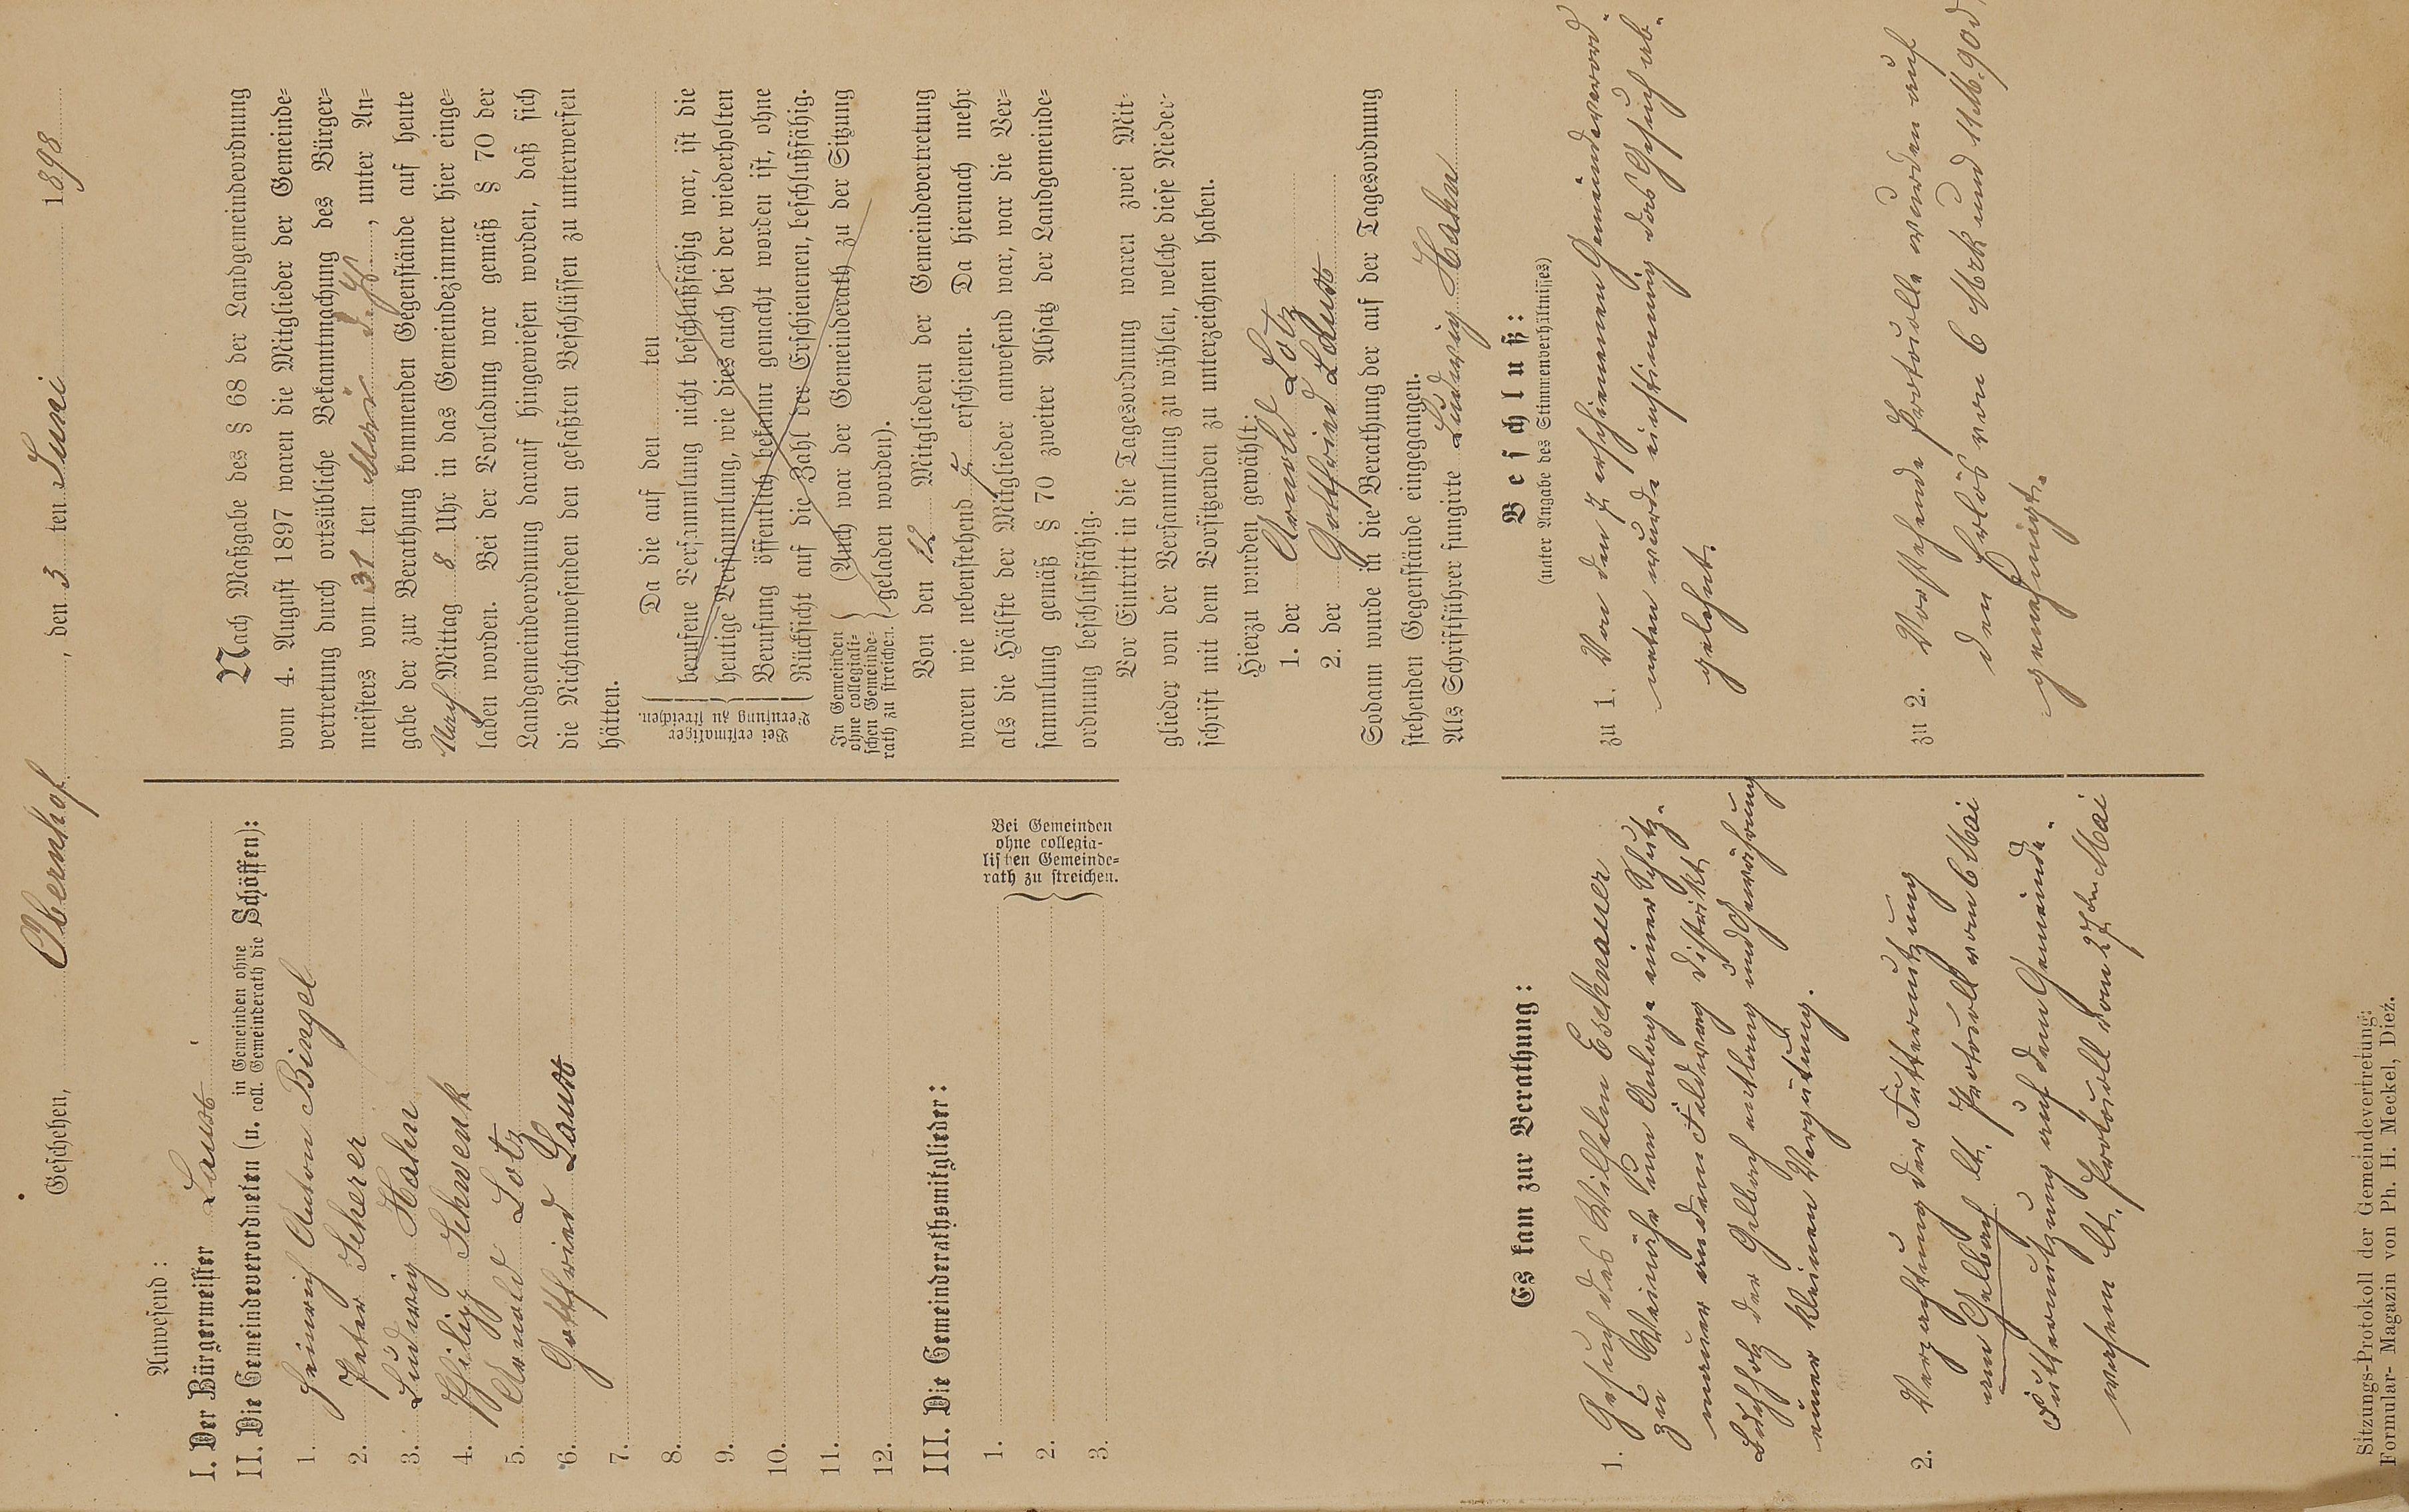 Geschehen, Obernhof, den 3 ten Juni 1898
Anwesend:
I. Der Bürgermeister Lauxs
II. Die Gemeindeverordneten (u. coll. Gemeinderath die Schöffen):
in Gemeinden ohne
1. Heinrich Anton Bingel
2. Peter Scherer
3. Ludwig Hahn
4. Philipp Schwenk
5. Arnold Lotz
6. Gottfried
7.
8.
9.
10.
11.
12.
III. Die Gemeinderathsmitglieder:
1.
2.
3.
Bei Gemeinden
ohne collegia-
lischen Gemeinde-
rath zu streichen.
Nach Maßgabe des § 68 der Landgemeindeordnung
vom 4. August 1897 waren die Mitglieder der Gemeinde-
vertretung durch ortsübliche Bekanntmachung des Bürger-
meisters vom 31 ten Mai d. Js, unter An-
gabe der zur Berathung kommenden Gegenstände auf heute
Nach Mittag 8 Uhr in das Gemeindezimmer hier einge-
laden worden. Bei der Vorladung war gemäß § 70 der
Landgemeindeordnung darauf hingewiesen worden, daß sich
die Nichtanwesenden den gefaßten Beschlüssen zu unterwerfen
hätten.
Bei erstmaliger
Berufung zu streichen.
Da die auf den ten
berufene Versammlung nicht beschlußfähig war, ist die
heutige Versammlung, wie dies auch bei der wiederholten
Berufung öffentlich bekannt gemacht worden ist, ohne
Rücksicht auf die Zahl der Erschienenen, beschlußfähig.
In Gemeinden
ohne collegiali-
schen Gemeinde-
rath zu streichen.
(Auch war der Gemeinderath zu der Sitzung
geladen worden).
Von den 12 Mitgliedern der Gemeindevertretung
waren wie nebenstehend 7 erschienen. Da hiernach mehr
als die Hälfte der Mitglieder anwesend war, war die Ver-
sammlung gemäß § 70 zweiter Absatz der Landgemeinde-
ordnung beschlußfähig.
Vor Eintritt in die Tagesordnung waren zwei Mit-
glieder von der Versammlung zu wählen, welche diese Nieder-
schrift mit dem Vorsitzenden zu unterzeichnen haben.
Hierzu wurden gewählt:
1. der Arnold Lotz
2. der Gottfried
Sodann wurde in die Berathung der auf der Tagesordnung
stehenden Gegenstände eingegangen.
Als Schriftführer fungirte Ludwig Hahn
Es kam zur Berathung:
1. Gesuch des Wilhelm Eschnauer
zu Weinähr um Anlage einer Schutz-
mauer an dem Feldweg Distrikt
Buchholz der Gelbach entlang und Gewährung
einer kleinen Vergütung.
2. Verpachtung der Futternutzung
am Gelbach lt. Protocoll vom 6 Mai
Futternutzung auf dem Gemeinde-
lt. Protocoll vom 27ten Mai
Beschluß:
(unter Angabe des Stimmenverhältnisses)
zu 1. Von den 7 erschienenen Gemeindeverord-
neten wurde einstimmig das Gesuch ab-
gelehnt.
zu 2. Vorstehende Protocolle wurden auf
den Erlös von 6 Mrk und 11 M. 90 d
genehmigt.
Sitzungs-Protokoll der Gemeindevertretung:
Formular- Magazin von Ph. H. Meckel, Diez.